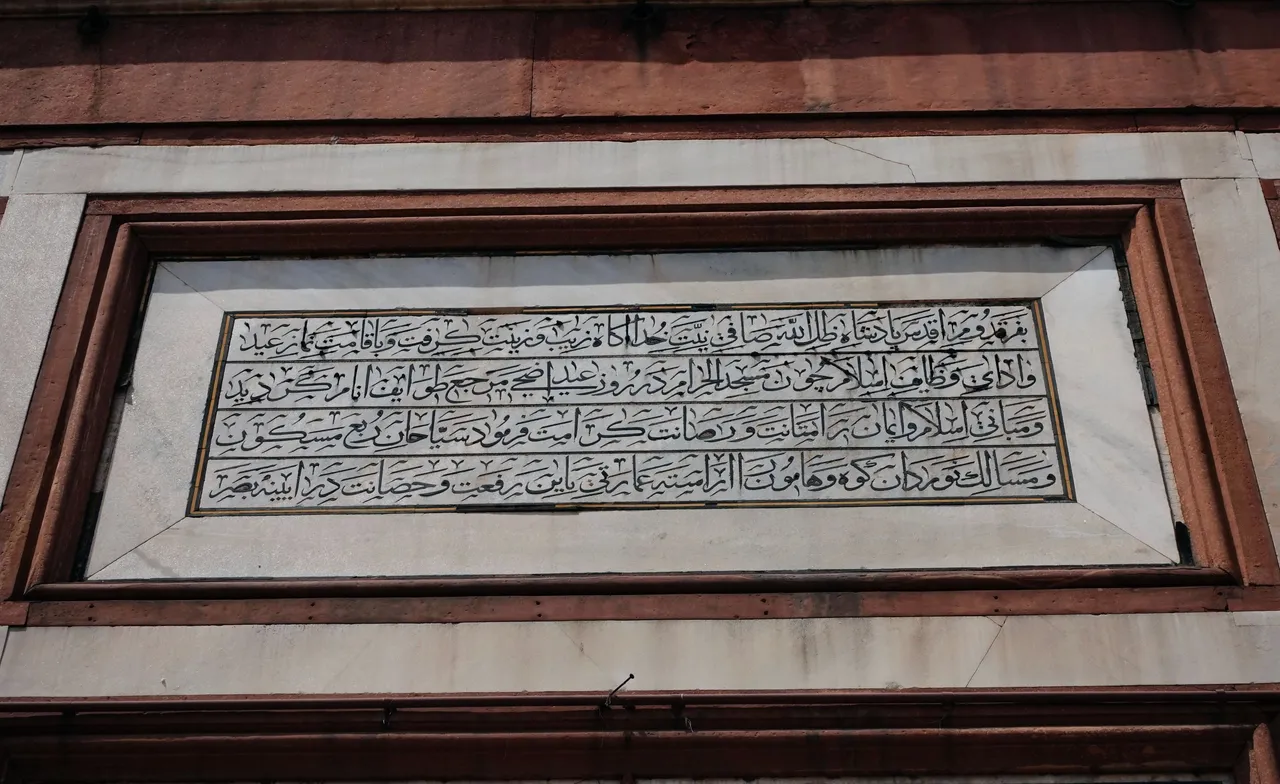 بفر قدوم اقدس پادشاه ظل الله صافی نیت خدا آگاه زیب و زینت گرفت و باقامت نماز عید
و ادای وظایف اسلام چون مسجد الحرام در روز عید اضحی مرجع طوایف انام گردید
و مبانی اسلام و ایمان را متانت و رصانت کرامت فرمود سیاحان ربع مسکون
و مسالک نوردان کوه و هامون را آراسته عمارتی باین رفعت و حصانت در آیینه بصر